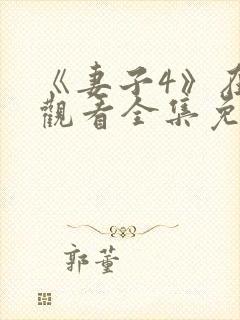 《妻子4》在
觀看全集免
郭董